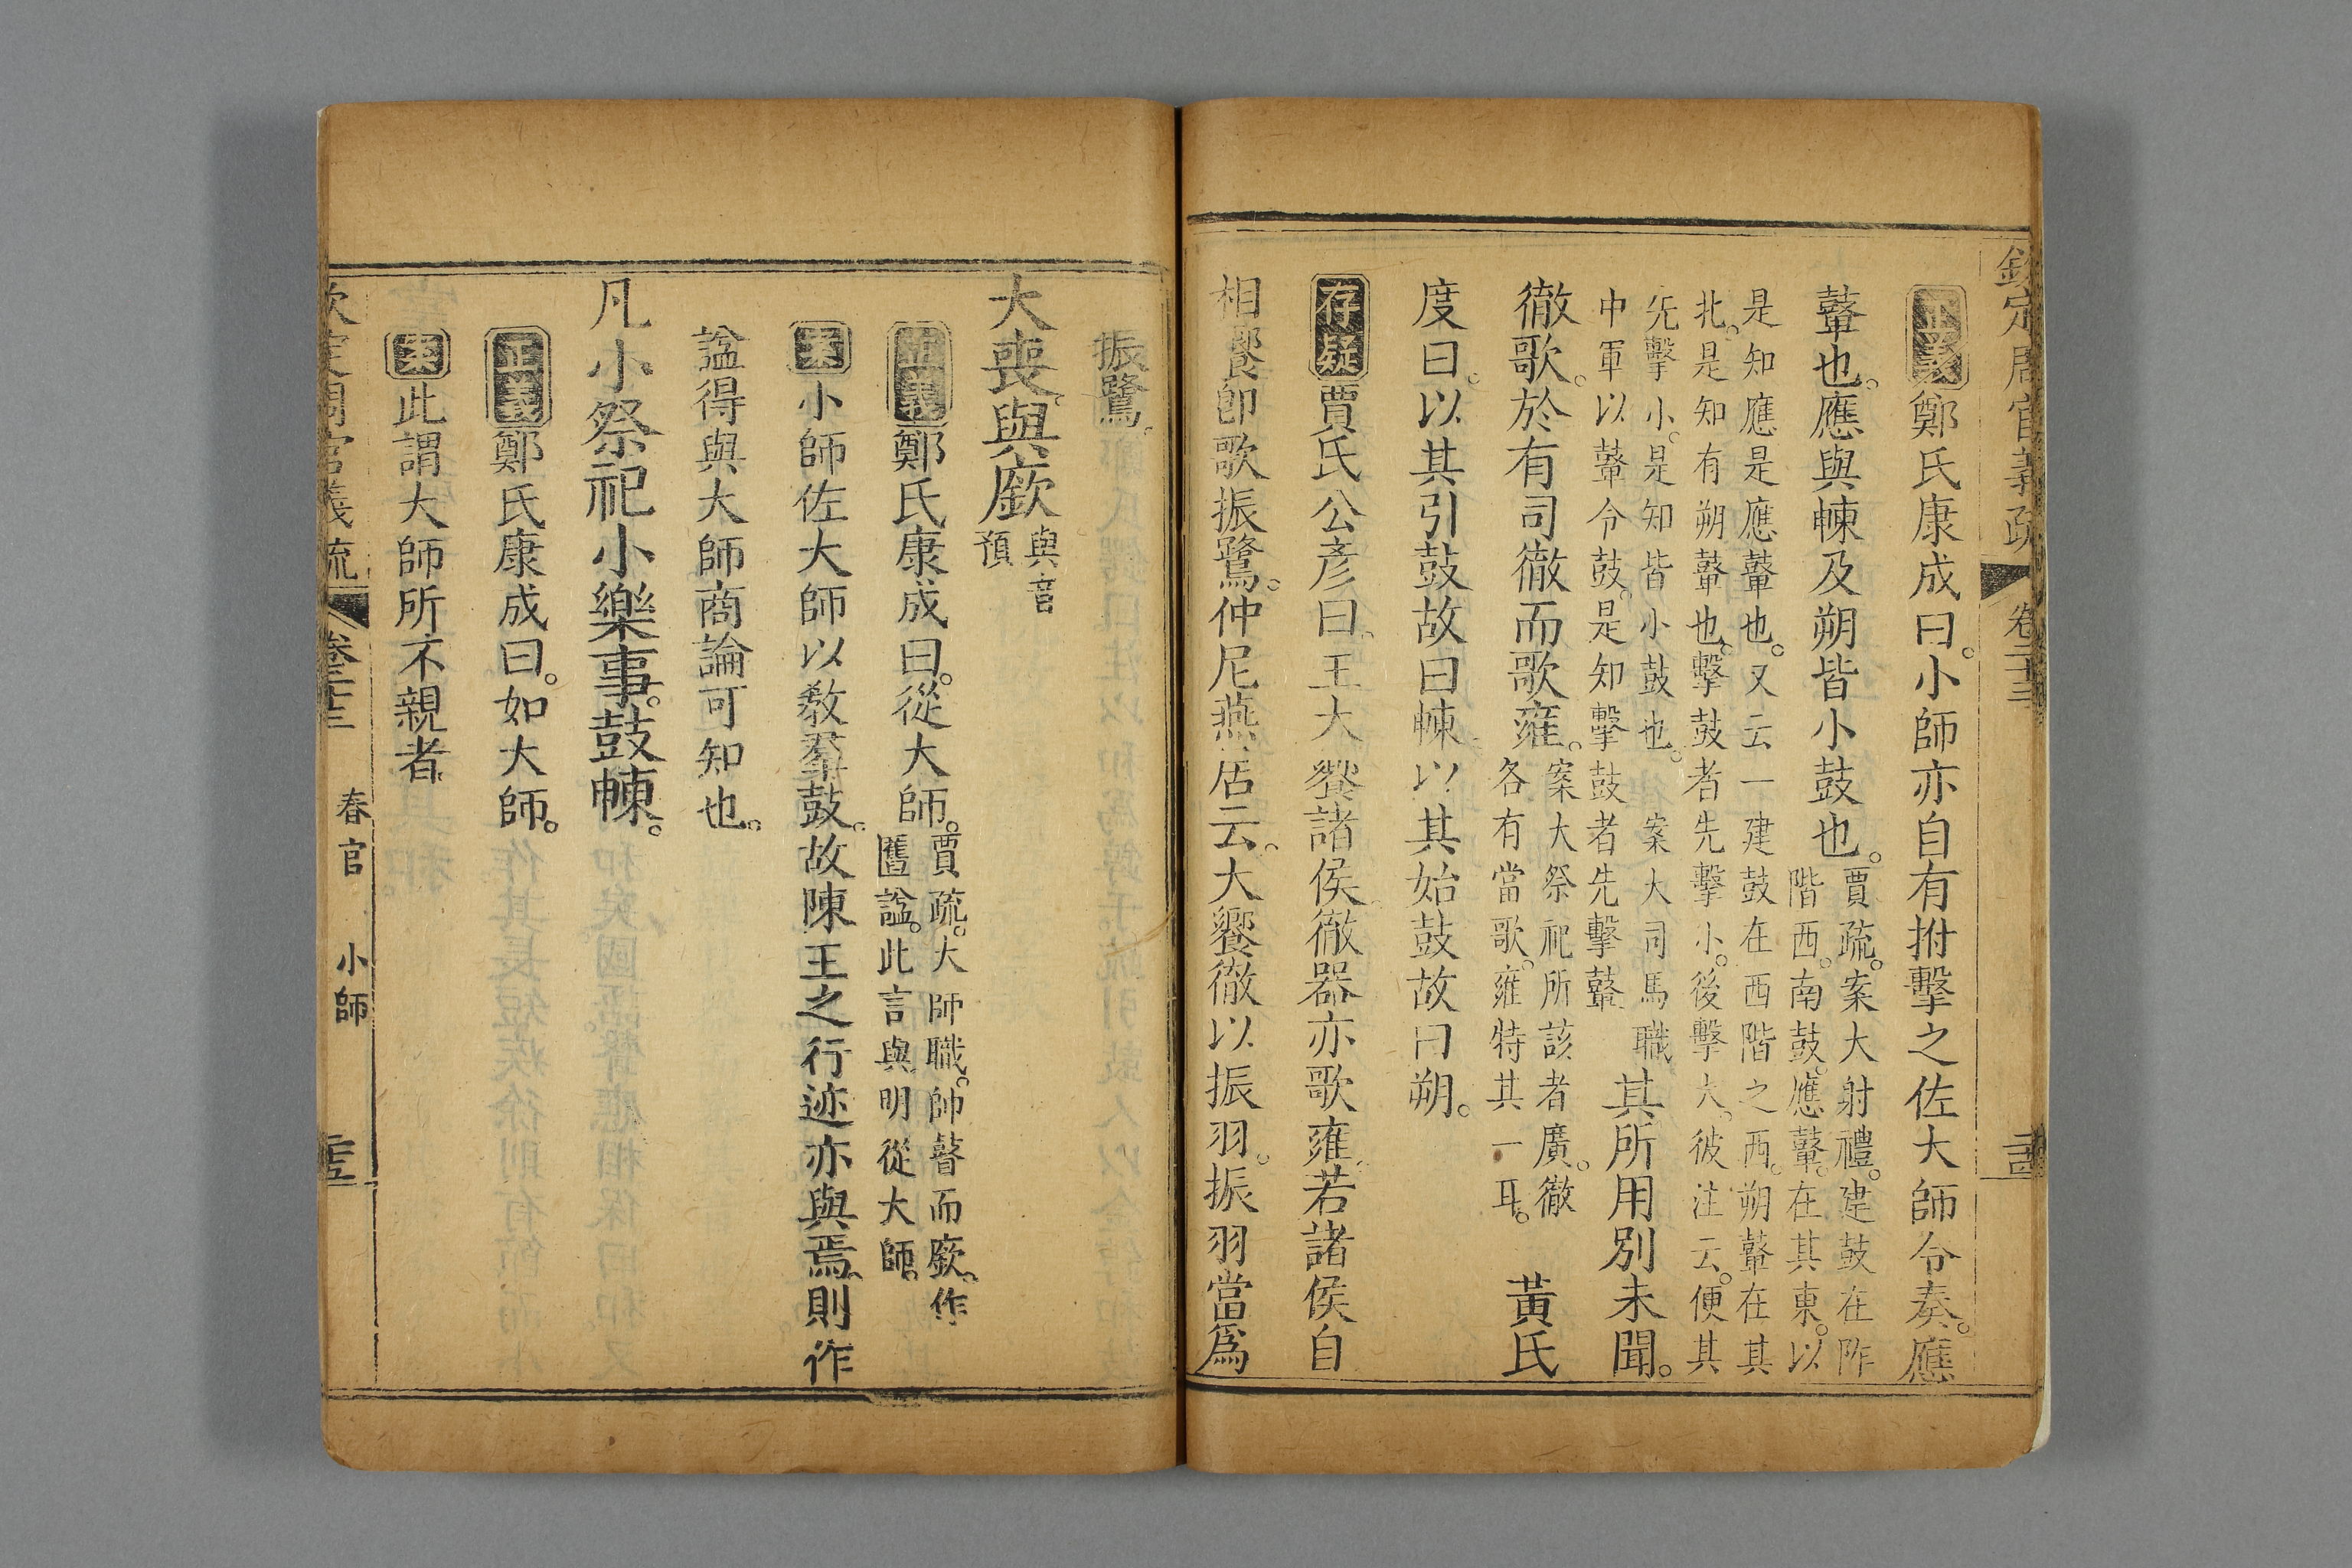 欽定周官義疏 卷二十三
正義鄭氏康成曰。小師亦自有拊擊之佐大師令奏。應
鼙也。應與㯥及朔皆小鼓也。
賈疏。案大射禮。建鼓在阼
階西。南鼓。應鼙。在其東。以
是知應是應鼙也。又云一建鼓在西階之西。朔鼙在其
北。是知有朔鼙也。擊鼓者先擊小。後擊大。彼注云。便其
先擊小。是知皆小鼓也。案大司馬職
中軍以鼙令鼓。是知擊鼓者先擊鼙
其所用別未聞。
徹歌。於有司徹而歌雍。
案大祭祀所該者廣。徹
各有當歌。雍特其一耳。
黃氏
度曰。以其引鼓故曰㯥以其始鼓故曰朔。
存疑賈氏公彥曰。王大饗諸侯徹器亦歌雍。若諸侯自
相饗卽歌振鷺。仲尼燕居云。大饗徹以振羽。振羽當爲
振鷺。
大喪與廞
與音
預
正義鄭氏康成曰。從大師。
賈疏。大師職。帥瞽而廞。作
匶諡。此言與明從大師。
案小師佐大師以敎羣鼓。故陳王之行迹亦與焉。則作
諡得與大師商論可知也。
凡小祭祀小樂事。鼓㯥。
正義鄭氏康成曰。如大師。
案此謂大師所不親者
欽定周官義疏 卷二十三 春官 小師